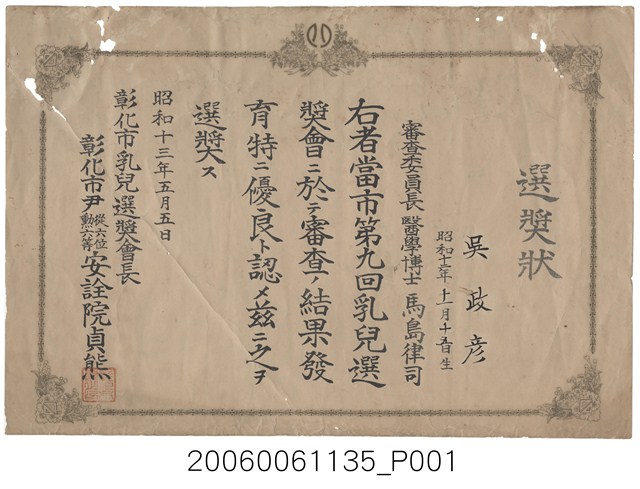 選奬狀
吳政彦
昭和十二年十一月十五日生
審查委員長 醫學博士 馬島律司
右者當市第九回乳兒選
奬會ニ於テ審查ノ結果發
育特ニ優良ト認メ玆ニ之ヲ
選奬ス
昭和十三年五月五日
彰化市乳兒選奬會長
彰化市尹 從六位 勳六等 安詮院貞熊
20060061135_P001